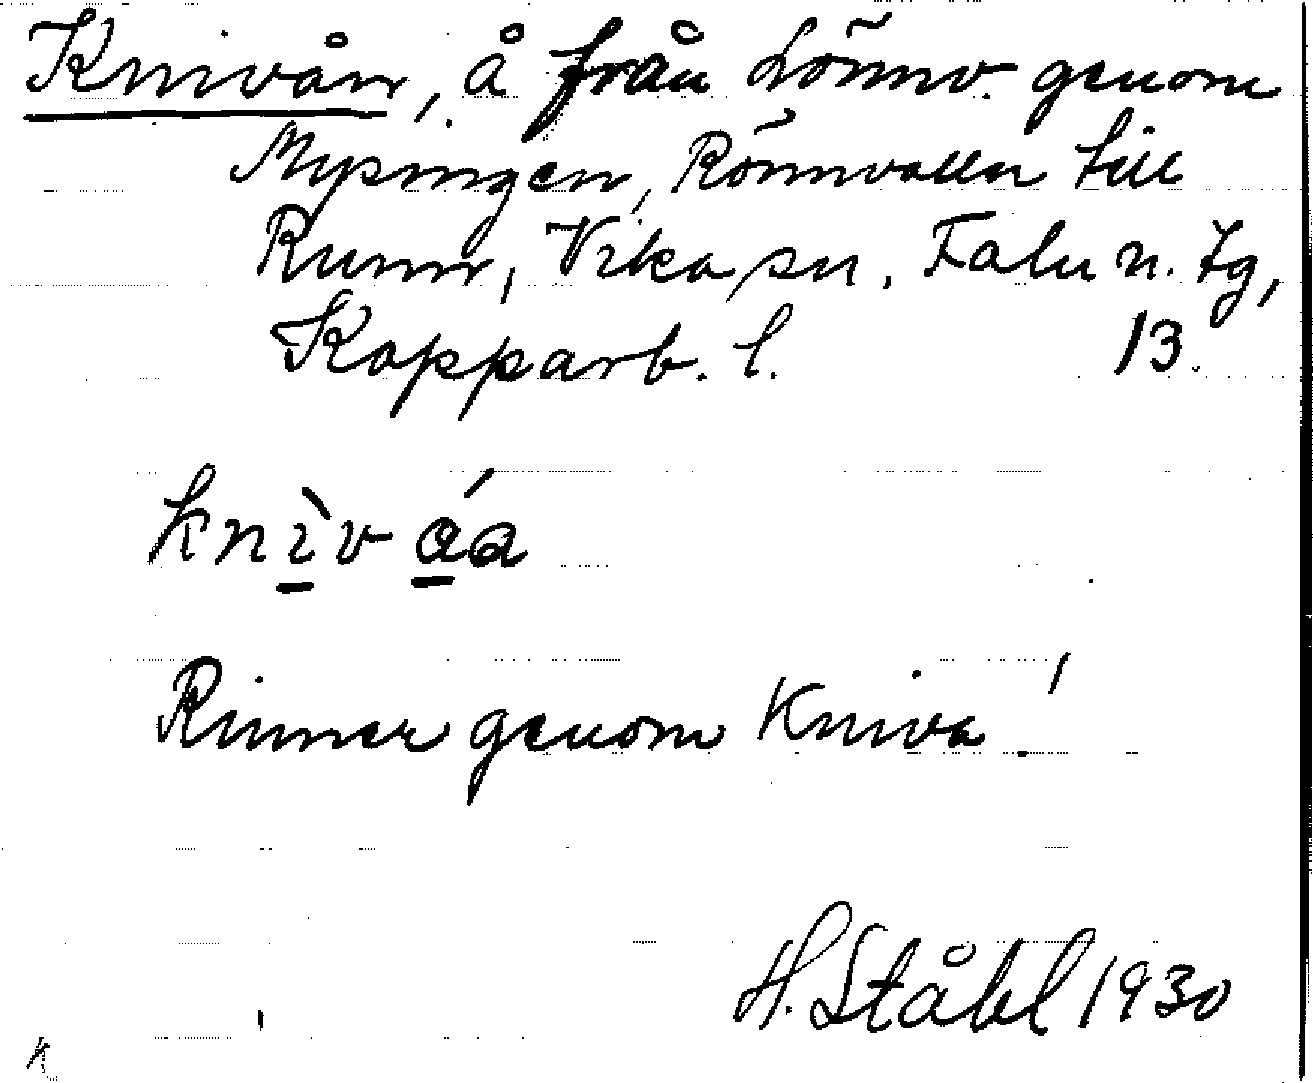 Knivån, å från Lönnv. genom
Mysingen, Rönnvallen till
Runn, Vika sn, Falu n. tg,
Kopparb. l. 13.
knìv áa
Rinner genom Kniva!
H. Ståhl 1930
K